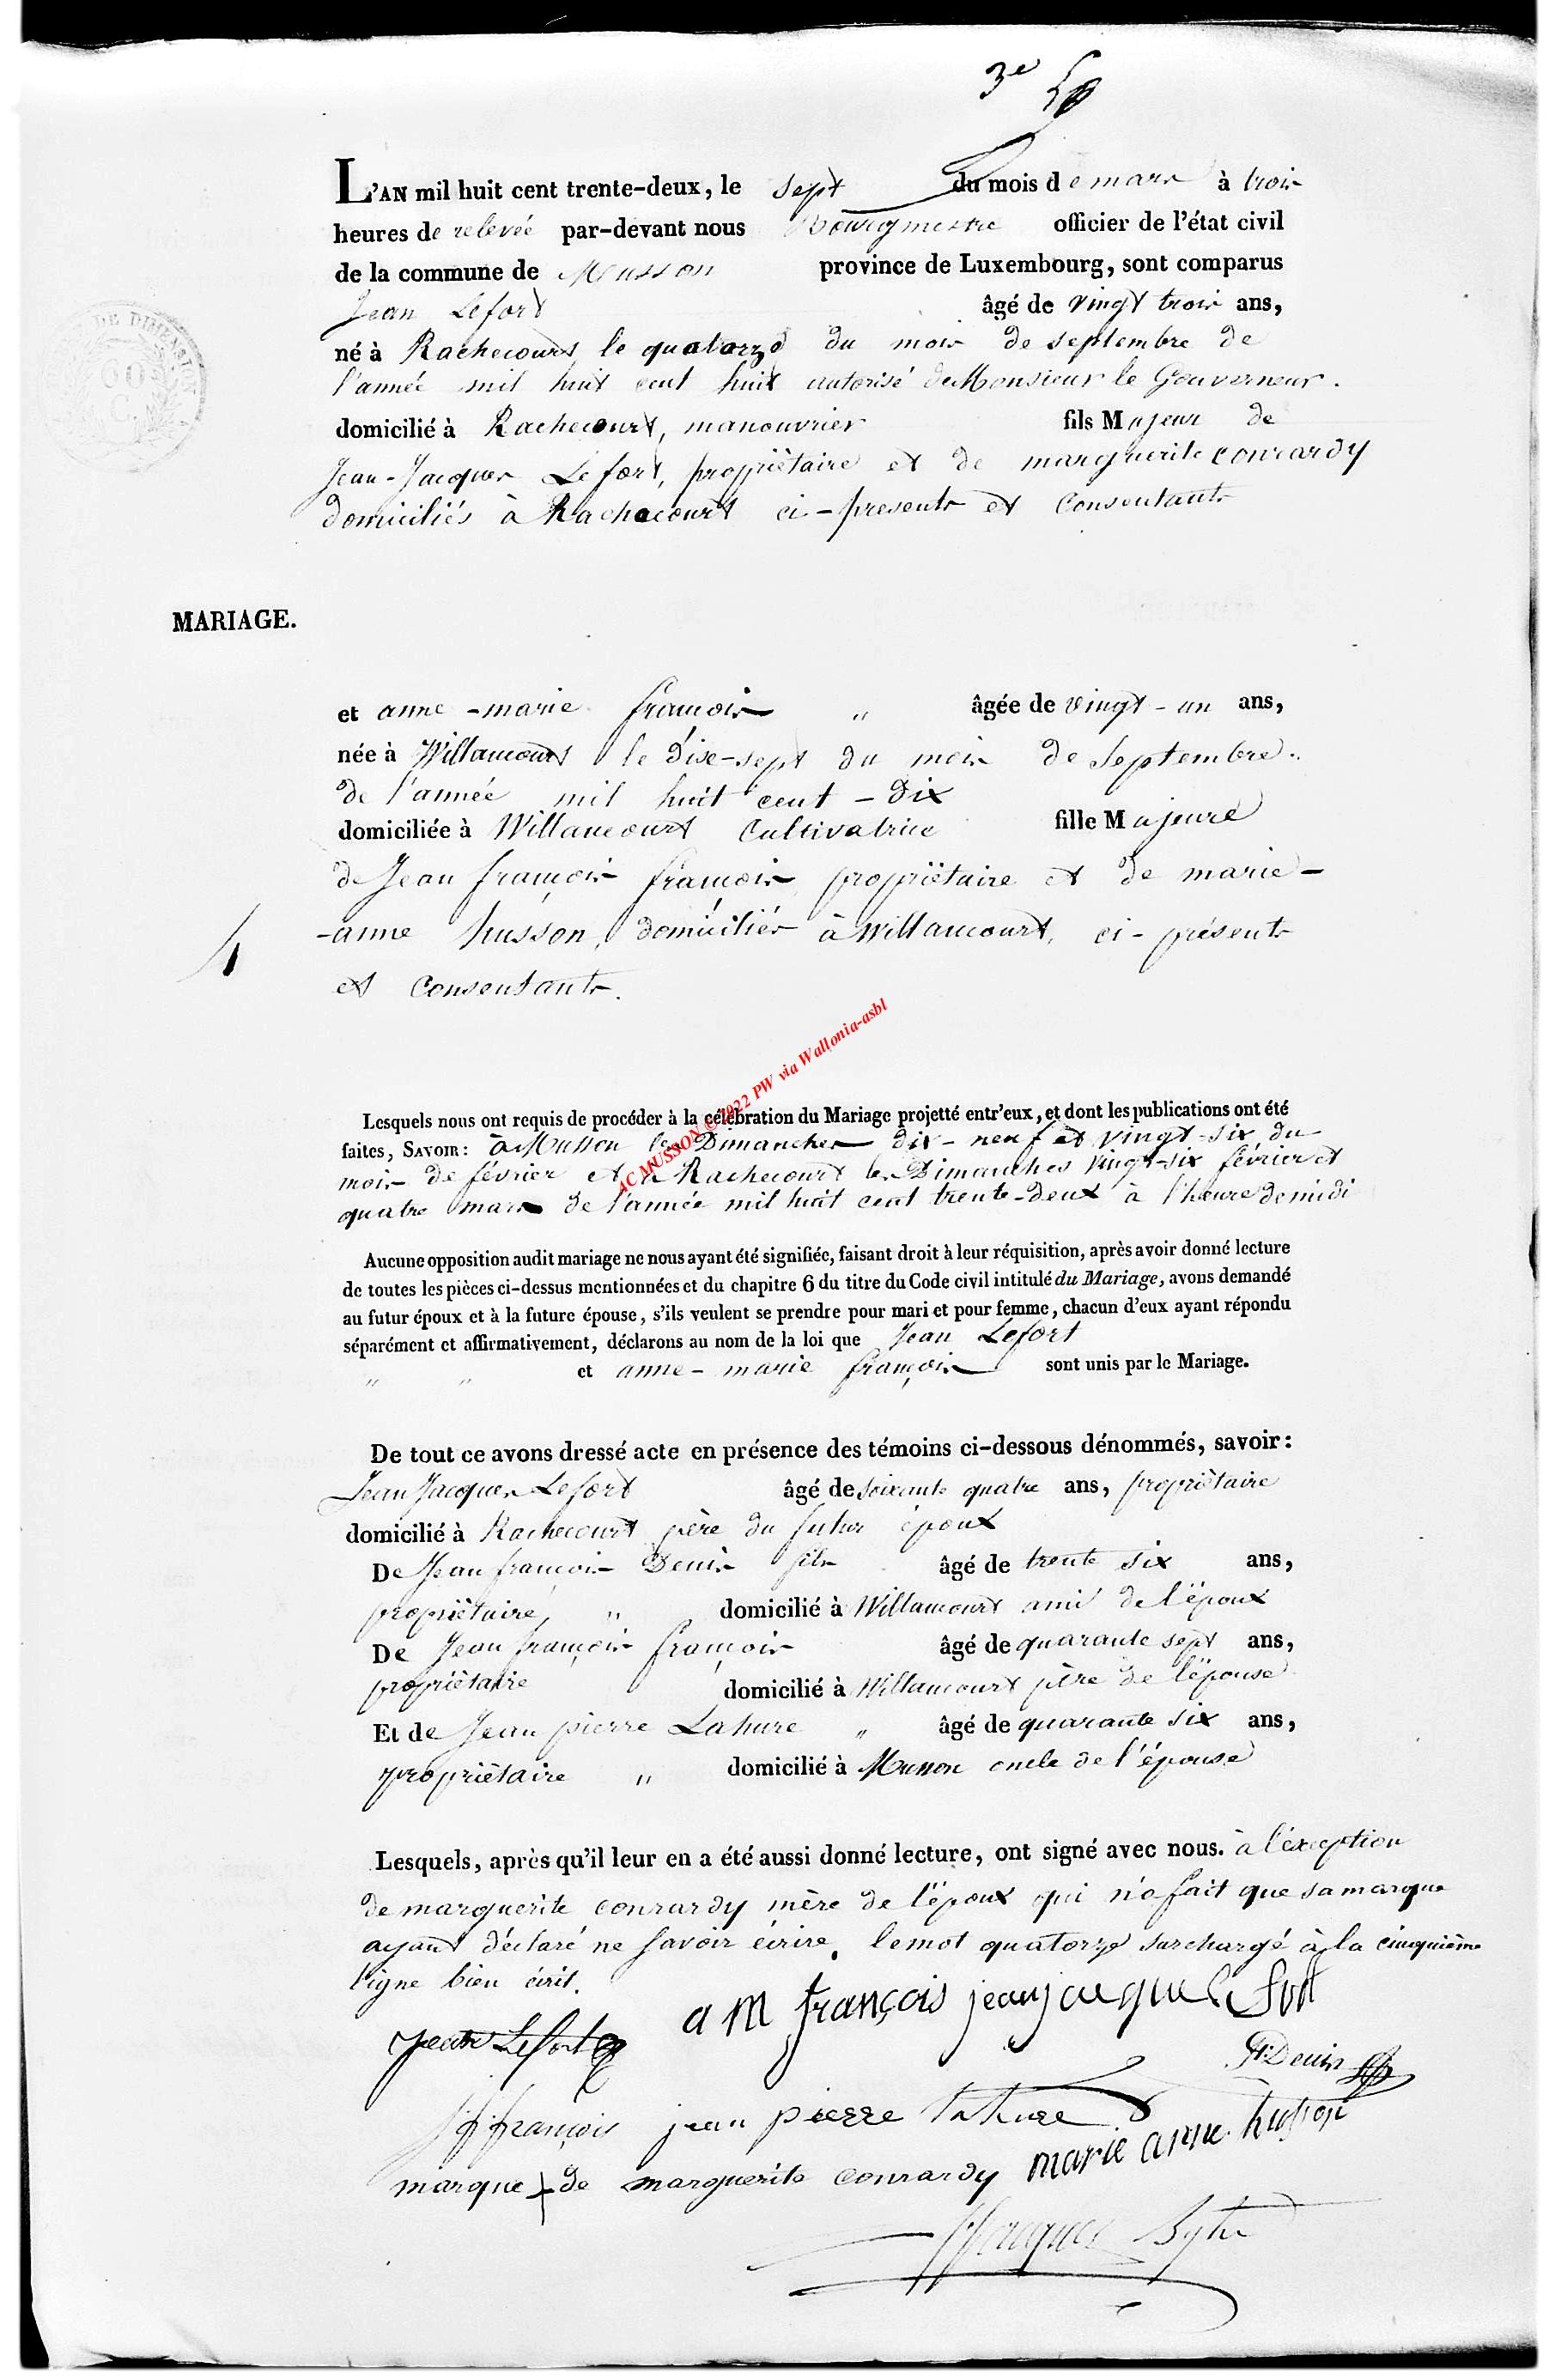 3e
L'AN mil huit cent trente-deux, le sept du mois de mars à trois
heures de relevée par-devant nous Bourgmestre officier de l'état civil
de la commune de Musson province de Luxembourg, sont comparus
Jean Lefort âgé de vingt trois ans,
né à Rachecourt le quatorze du mois de septembre de
l'année mil huit cent huit autorisé de Monsieur le Gouverneur.
domicilié à Rachecourt, manouvrier fils Majeur de
Jean-Jacques Lefort, propriètaire et de marguerite conrardy
domiciliés à Rachecourt ci-presents et Consentants
MARIAGE.
et anne-marie françois " âgée de vingt-un ans,
née à Willancourt le dixe-sept du mois de Septembre.
de l'année mil huit cent-dix
domiciliée à Willancourt Cultivatrice fille Majeure
de Jean françois françois propriëtaire et de marie-
-anne husson, domiciliés à Willancourt, ci-présents
4
et Consentants.
AC MUSSON © 2022 PW via Wallonia-asbl
Lesquels nous ont requis de procéder à la célébration du Mariage projetté entr'eux, et dont les publications ont été
faites, SAVOIR: à Musson les Dimanches dix-neuf et vingt-six du
mois de février et à Rachecourt les Dimanches vingt-six février et
quatre mars de l'année mil huit cent trente-deux à l'heure de midi
Aucune opposition audit mariage ne nous ayant été signifiée, faisant droit à leur réquisition, après avoir donné lecture
de toutes les pièces ci-dessus mentionnées et du chapitre 6 du titre du Code civil intitulé du Mariage, avons demandé
au futur époux et à la future épouse, s'ils veulent se prendre pour mari et pour femme, chacun d'eux ayant répondu
séparément et affirmativement, déclarons au nom de la loi que Jean Lefort
" " et anne-marie françois sont unis par le Mariage.
De tout ce avons dressé acte en présence des témoins ci-dessous dénommés, savoir:
Jean Jacques Lefort âgé de soixante quatre ans, propriètaire
domicilié à Rachecourt père du futur époux
De Jean françois Denis fils âgé de trente six ans,
propriètaire, " domicilié à Willancourt ami de l'époux
De Jean françois françois âgé de quarante sept ans,
propriètaire domicilié à Willancourt père de l'épouse
Et de Jean pierre Lahure " âgé de quarante six ans,
propriètaire " domicilié à Musson oncle de l'épouse
Lesquels, après qu'il leur en a été aussi donné lecture, ont signé avec nous. à l'exception
de marguerite conrardy mère de l'époux qui n'a fait que sa marque
ayant déclaré ne savoir écrire. le mot quatorze surchargé à la cinquième
ligne bien écrit.
Jean Lefort a M françois jean jacques le fort
Denis
J f françois jean pierre lahure
marque de marguerite conrardy marie anne husson